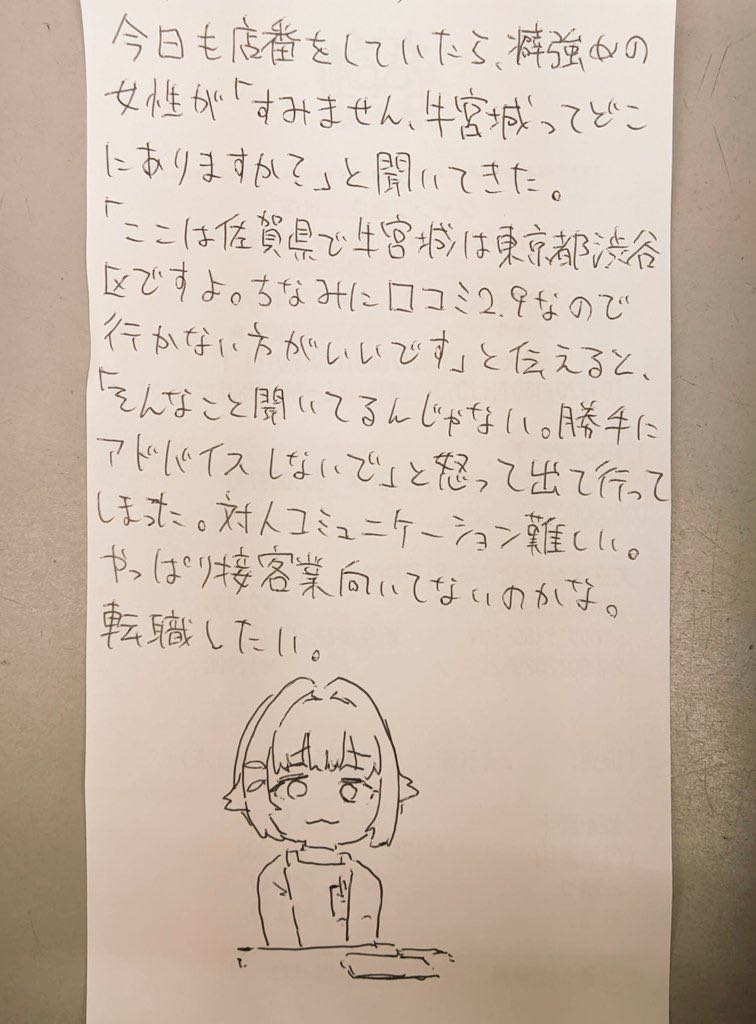 今日も店番をしていたら、癖強めの
女性が「すみません、牛宮城ってどこ
にありますか?」と聞いてきた。
「ここは佐賀県で牛宮城は東京都渋谷
区ですよ。ちなみに口コミ2.9なので
行かない方がいいです」と伝えると、
「そんなこと聞いてるんじゃない。勝手に
アドバイスしないで」と怒って出て行って
しまった。対人コミュニケーション難しい。
やっぱり接客業向いてないのかな。
転職したい。